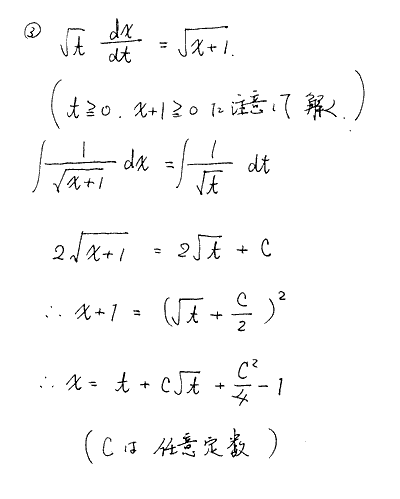 ③ √t dx/dt = √(x+1).
(t≧0. x+1≧0 に注意して解く.)
∫ 1/√(x+1) dx = ∫ 1/√t dt
2√(x+1) = 2√t + C
∴ x+1 = (√t + C/2)²
∴ x = t + C√t + C²/4 - 1
(Cは 任意定数)